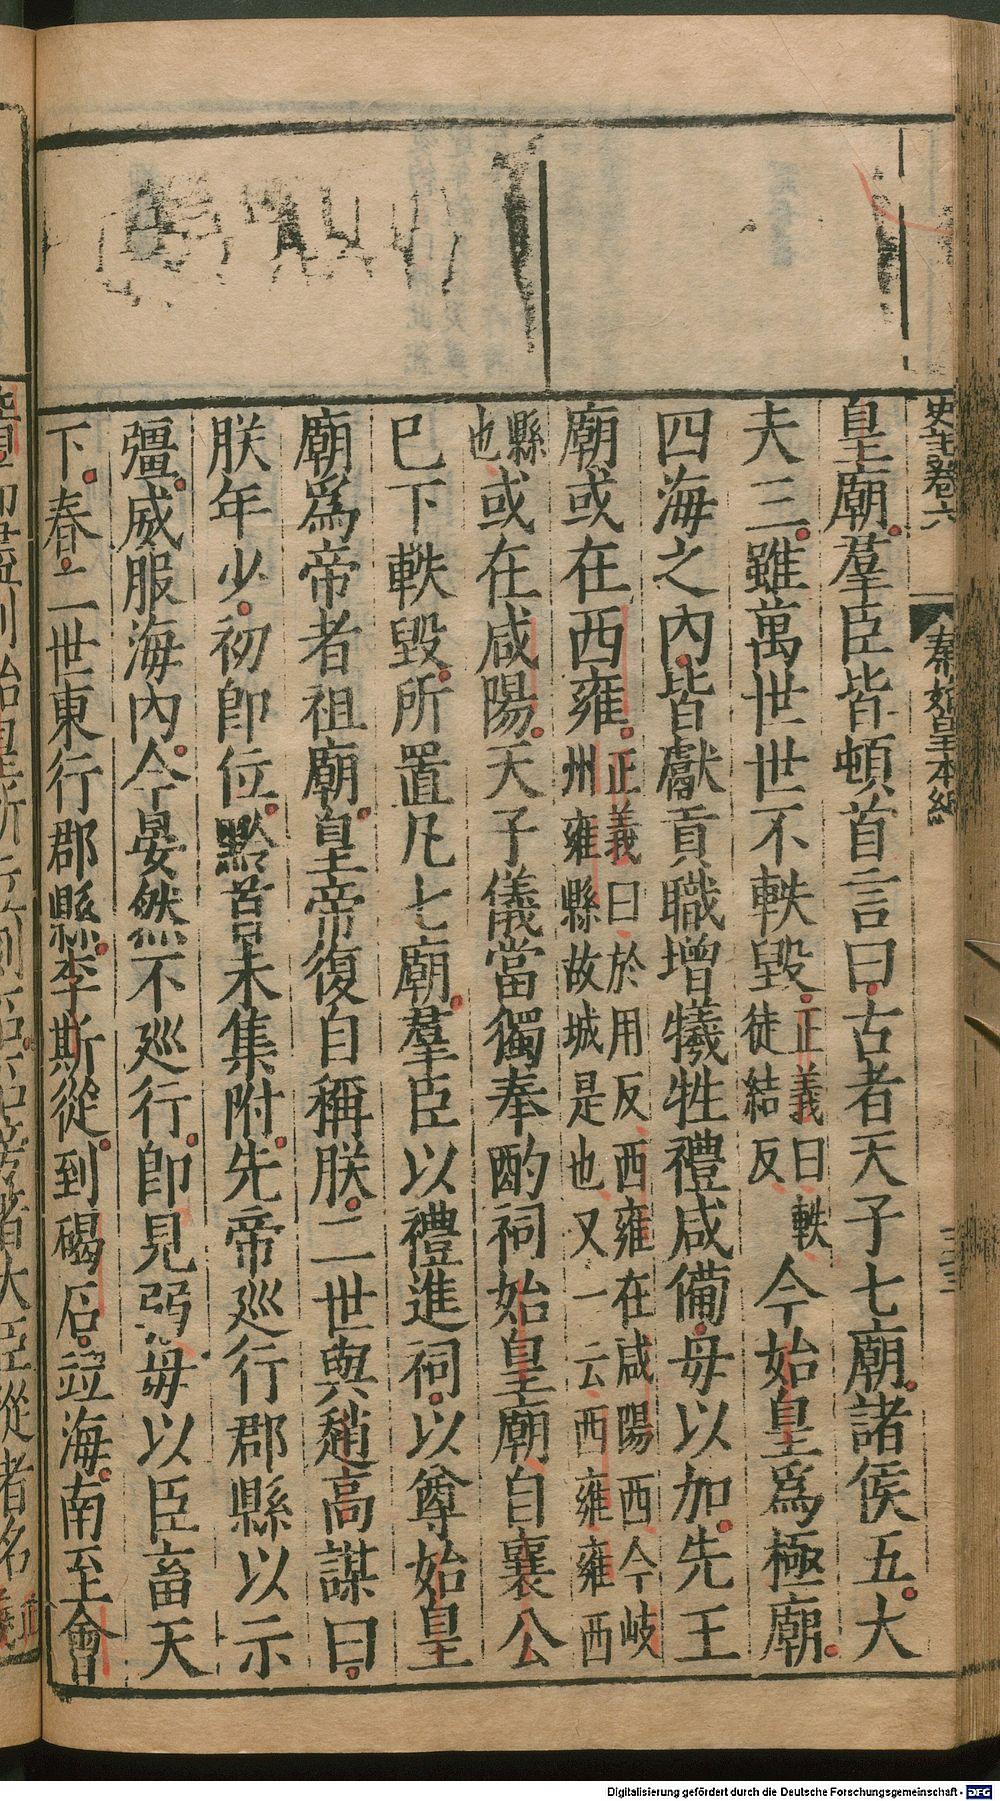 史記卷六 秦始皇本紀
皇廟羣臣皆頓首言曰古者天子七廟諸侯五大
夫三雖萬世世不軼毀正義曰軼徒結反今始皇爲極廟
四海之內皆獻貢職增犧牲禮咸備毋以加先王
廟或在西雍正義曰於用反西雍在咸陽西今岐州雍縣故城是也又一云西雍雍西
縣也或在咸陽天子儀當獨奉酌祠始皇廟自襄公
已下軼毀所置凡七廟羣臣以禮進祠以尊始皇
廟爲帝者祖廟皇帝復自稱朕二世與趙高謀曰
朕年少初卽位黔首未集附先帝巡行郡縣以示
彊威服海內今晏然不巡行卽見弱毋以臣畜天
下春二世東行郡縣李斯從到碣石竝海南至會
Digitalisierung gefördert durch die Deutsche Forschungsgemeinschaft - DFG